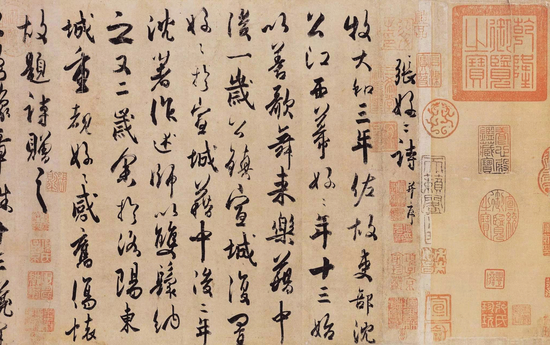 乾隆
御覽
之寶
張好〻詩 并序
牧大和三年佐故吏部沈
公江西幕好〻年十三始
以善歌舞來樂籍中
後一歲公鎮宣城復置
好〻於宣城籍中後二年
沈著作述師以雙鬟納
之又二歲余於洛陽東
城重覩好〻感舊傷懷
故題詩贈之
為豫章姝十三纔